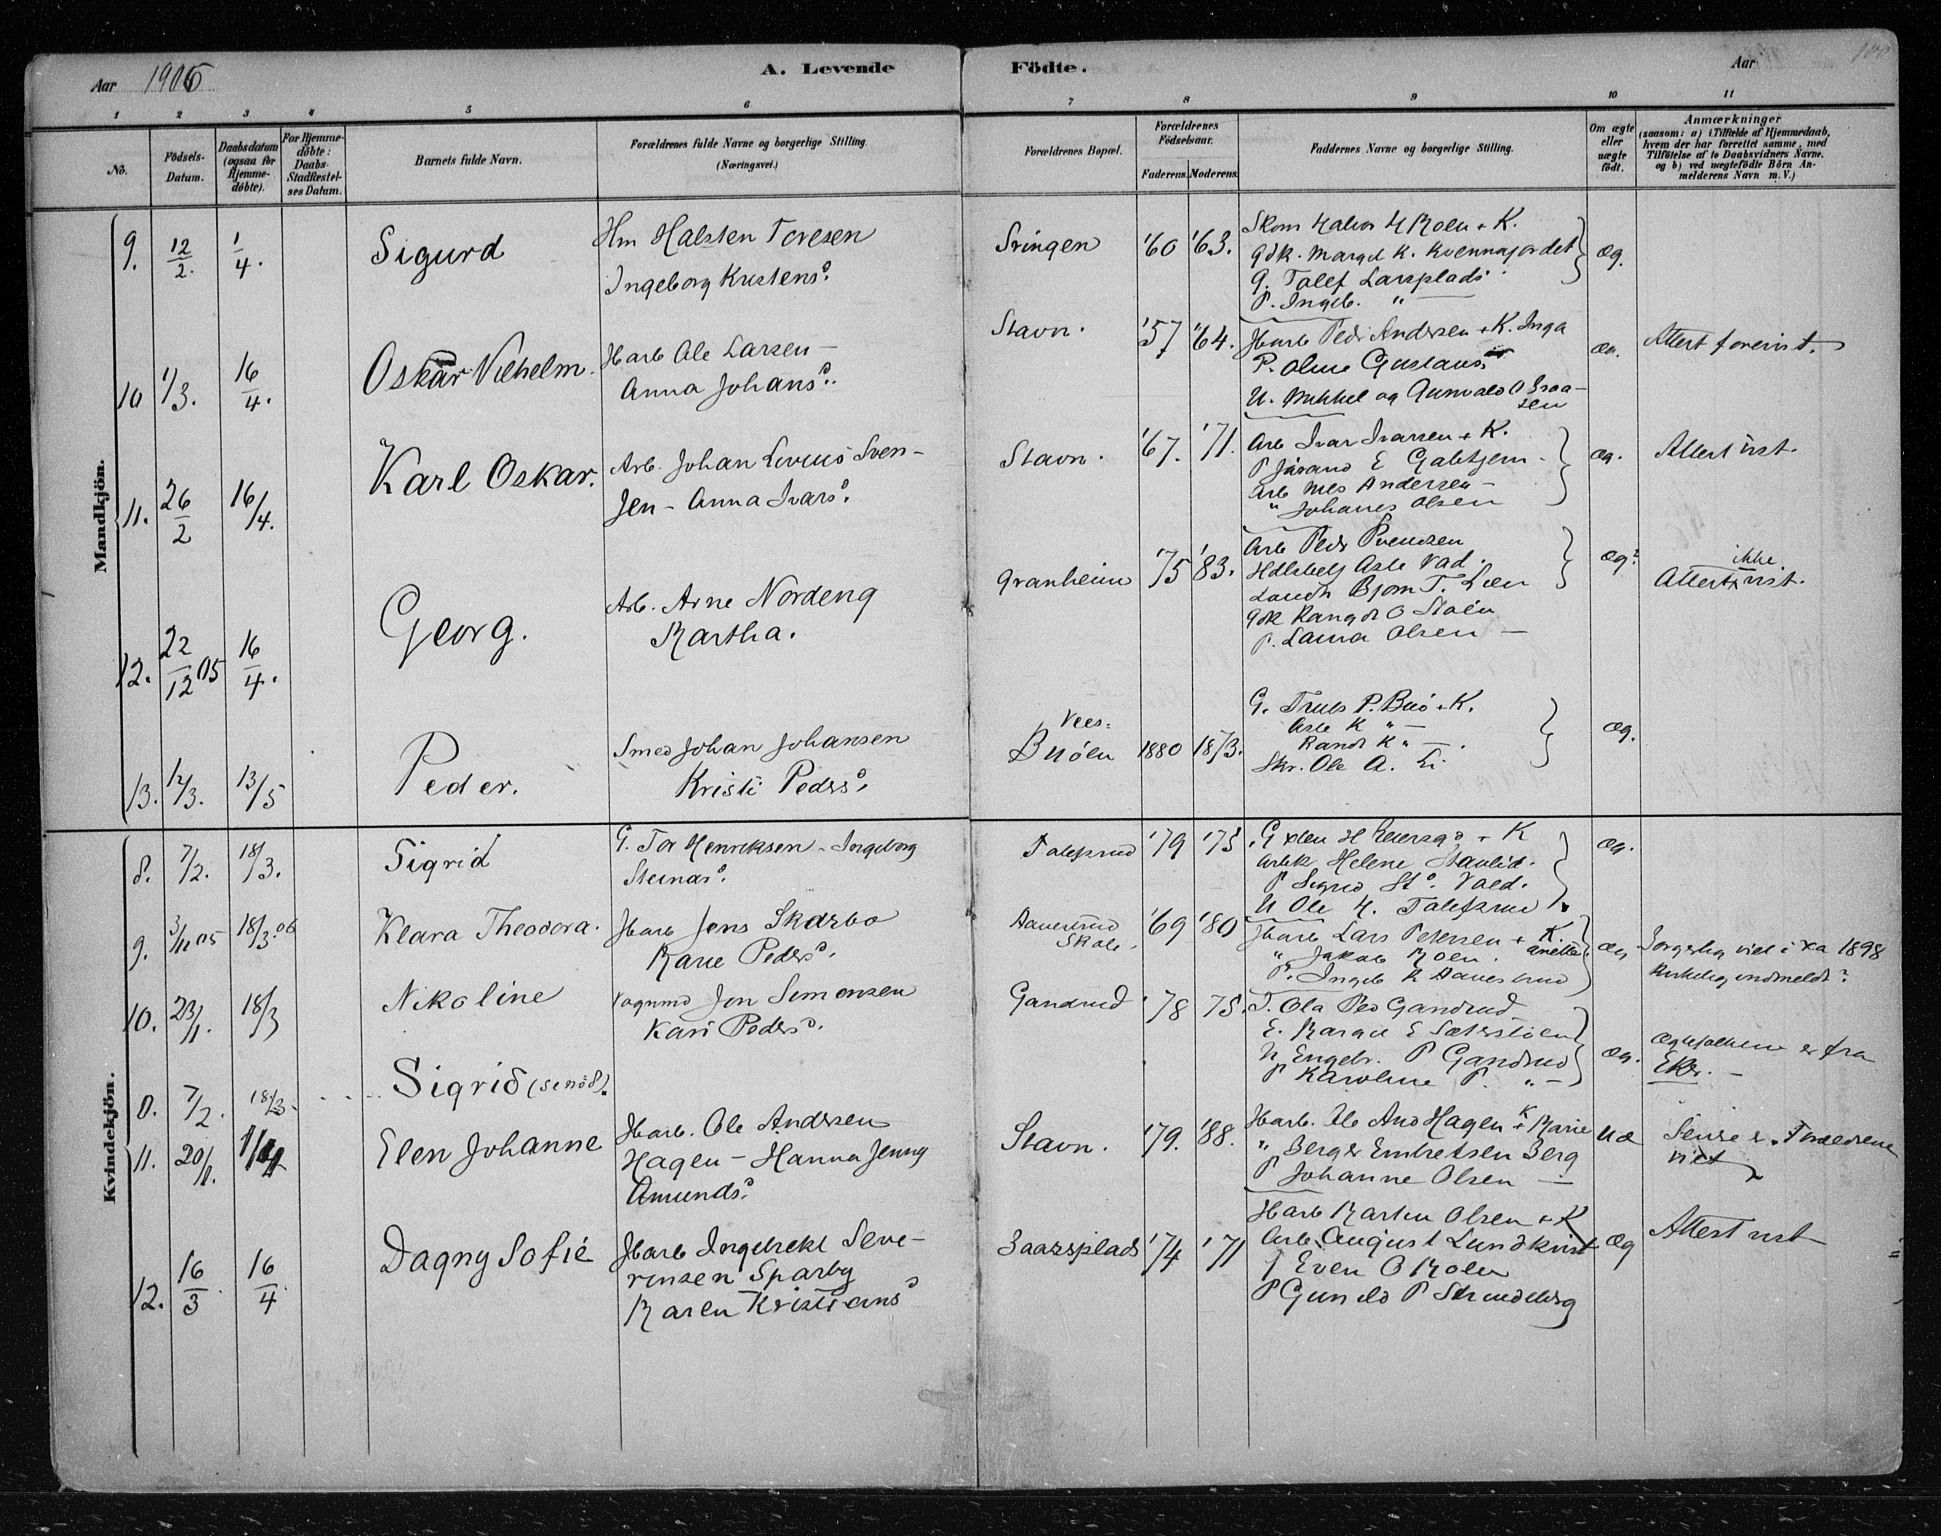 Aar 1906
A. Levende Födte.
Aar
100
1 2 3 4 5 6 7 8 9 10 11
No.
Födsels-Datum.
Daabsdatum (ogsaa for Hjemme-döbte).
For Hjemme-döbte: Daabs-Stadfæstel-ses Datum.
Barnets fulde Navn.
Forældrenes fulde Navne og borgerlige Stilling (Næringsvei.)
Forældrenes Bopæl.
Forældrenes Födselsaar.
Faderens. Moderens.
Faddernes Navne og borgerlige Stilling.
Om ægte eller uægte födt.
Anmærkninger
(saasom: a) i Tilfælde af Hjemmedaab, hvem der har forrettet samme, med Tilföielse af to Daabsvidners Navne, og b) ved uegtefödte Börn An-melderens Navn m. V.)
Mandkjön.
9. 12/2. 1/4. Sigurd
Hm Halsten Toresen
Ingeborg Kristensd.
Svingen '60 '63.
Skom Halvor H Moen + K.
Gdk. Margit K. Kvennajordet
G. Tolef Larsplads
P. Ingeb. "
Æg.
10 1/3. 16/4. Oskar Vilhelm.
Harb Ole Larsen
Anna Johansd.
Stavn. '57 '64.
Harb Peder Andersen + K. Inga
P. Oline Gustavs
U. Mikkel og Gunvald O
sen
æg. Attest forevist.
11. 26/2 16/4. Karl Oskar.
Arb. Johan Livius Sven-
sen - Anna Ivarsd.
Stavn. '67. '71.
Arb Ivar Ivarsen + K.
P Jørand E
Arb Nils Andersen
" Johanes Olsen
æg. Attest vist.
12. 22/12 05 16/4. Georg.
Arb. Arne Nordeng
Martha.
Granheim '75 '83.
Arb Peder Svendsen
Asle Vad.
Bjørn T. Lien
Gdk Rangdi O Støen
P. Laura Olsen
æg? Attest ikke vist.
13. 12/3. 13/5 Peder.
Smed Johan Johansen
Kristi Pedersd.
Nees:
Buøen 1880 1873.
G. Truls P. Buø + K.
Asle K "
Randi K "
Skr. Ole A. Li
æg.
Kvindekjön.
8. 7/2. 18/3. Sigrid
G. Tor Henriksen - Ingeborg
Steinarsd.
Tolefsrud '79 '75.
H + K
Helene Stavlid.
P Sigrid St. Vald.
U Ole H. Tolefsrud
æg.
9. 3/11 05 18/3. 06 Klara Theodora.
Harb Jens Skarbo
Marie Pedersd.
Aavestrud
Skole. '69 '80
Harb Lars Petersen + K. Anette
" Jakob Moen.
P. Ingeb R Aavestrud
æg Borgerlig viet i 1898
Kirkelig indmeldt?
10. 23/1. 18/3 Nikoline
Vognmd Jon Simensen
Kari Pedersd.
Gandrud '78 75.
T. Ola Ped Gandrud
E. Margit E Sæterstøen
U Engebr. P Gandrud
P Karoline P. "
æg. Ægtefolkene er fra
Eker.
0. 7/2. 18/3. Sigrid (se nº 8).
11. 20/1. 1/4 Elen Johanne
Harb. Ole Andersen
Hagen - Hanna Jenny
Amundsd.
Stavn. '79. '88.
Harb. Ole And Hagen + K Marie
" Berger Embretsen Berg
P Johanne Olsen
Uæ Senere er Forældrene
viet
12. 16/3 16/4 Dagny Sofie
Harb Ingebrekt Seve-
rinsen Sparby
Maren Kristiansd
Saarsplads '74 '71
Harb Martin Olsen + K
Arb August Lundkvist
J Even O Moen
P Gunild P Strandberg
Æg Attest vist